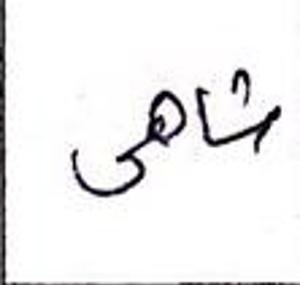 شاهی